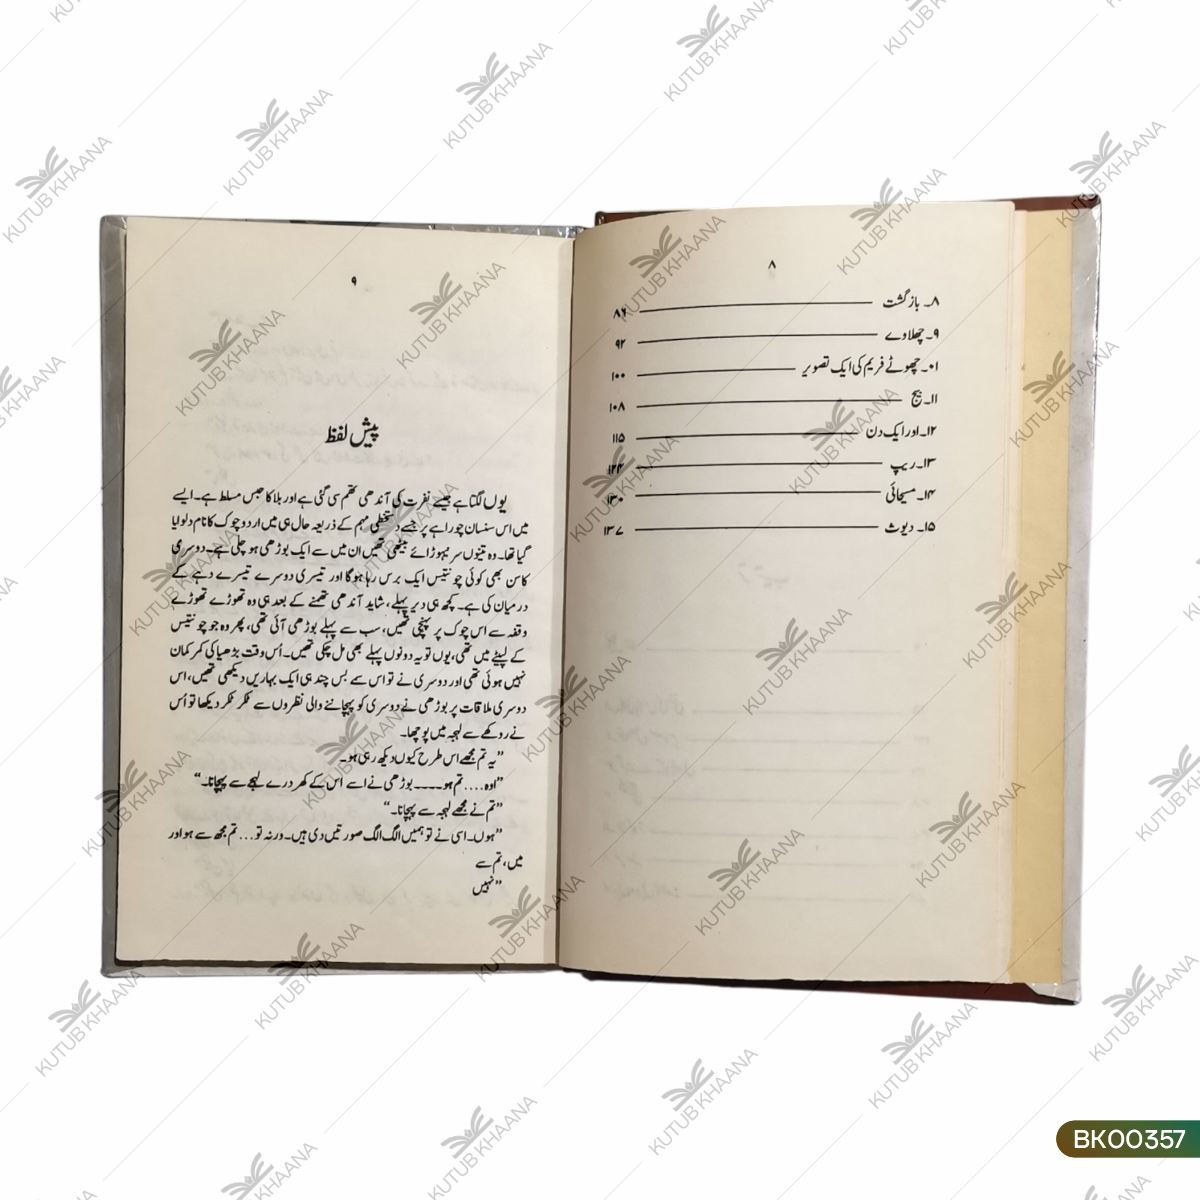 ۸
۸۔ بازگشت ۸۶
۹۔ چھلاوے ۹۲
۱۰۔ چھوٹے فریم کی ایک تصویر ۱۰۰
۱۱۔ بیچ ۱۰۸
۱۲۔ اور ایک دن ۱۱۵
۱۳۔ ریپ ۱۲۴
۱۴۔ مسیحائی ۱۳۰
۱۵۔ دیوث ۱۳۷
۹
پیش لفظ
یوں لگتا ہے جیسے نفرت کی آندھی تھم سی گئی ہے اور بلا کا حبس مسلط ہے۔ ایسے
میں اس سنسان چوراہے پر جسے دستخطی مہم کے ذریعہ حال ہی میں اردو چوک کا نام دلوایا
گیا تھا۔ وہ تینوں سر نیہوڑائے بیٹھی تھیں ان میں سے ایک بوڑھی ہو چلی ہے۔ دوسری
کا سن بھی کوئی چونتیس ایک برس رہا ہوگا اور تیسری دوسرے تیسرے دہے کے
درمیان کی ہے۔ کچھ ہی دیر پہلے، شاید آندھی تھمنے کے بعد ہی وہ تھوڑے تھوڑے
وقفہ سے اس چوک پر پہنچی تھیں، سب سے پہلے بوڑھی آئی تھی، پھر وہ جو چونتیس
کے لپیٹے میں تھی، یوں تو یہ دونوں پہلے بھی مل چکی تھیں۔ اُس وقت بڑھیا کی کمر کمان
نہیں ہوئی تھی اور دوسری نے تو اس سے بس چند ہی ایک بہاریں دیکھی تھیں، اس
دوسری ملاقات پر بوڑھی نے دوسری کو پہچاننے والی نظروں سے ٹکر ٹکر دیکھا تو اُس
نے روکھے سے لہجہ میں پوچھا۔
”یہ تم مجھے اس طرح کیوں دیکھ رہی ہو۔
”اوہ .... تم ہو ---- بوڑھی نے اسے اس کے کھردرے لہجے سے پہچانا۔“
”تم نے مجھے لہجہ سے پہچانا۔“
”ہوں۔ اسی نے تو ہمیں الگ الگ صورتیں دی ہیں۔ ورنہ تو ... تم مجھ سے ہو اور
میں، تم سے
”نہیں
KUTUB KHAANA
BK00357